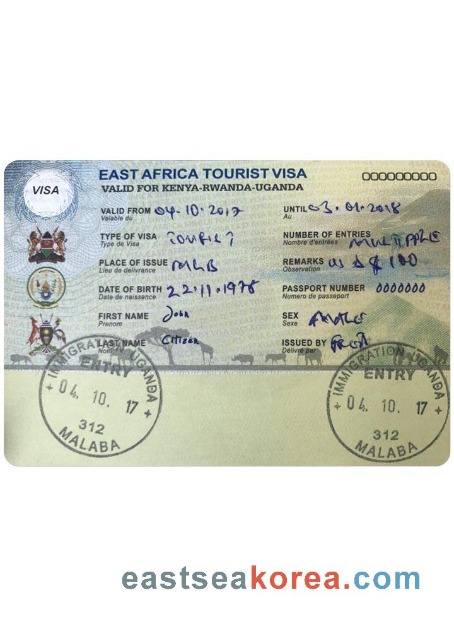 EAST AFRICA TOURIST VISA
VISA
VALID FOR KENYA-RWANDA-UGANDA
000000000
VALID FROM 04.10.2017
Valable du
UNTIL 03.01.2018
Au
TYPE OF VISA TOURIST
Type de Visa
NUMBER OF ENTRIES MULTIPLE
Nombre d'entrées
PLACE OF ISSUE MLB
Lieu de délivrance
REMARKS US $ 100
Observation
DATE OF BIRTH 22.11.1978
Date de naissance
PASSPORT NUMBER 0000000
Numero de passeport
FIRST NAME John
Prenom
SEX MALE
Sexe
LAST NAME Citizen
Nom
ISSUED BY
Délivré par
IMMIGRATION UGANDA
ENTRY
04. 10. 17
312
MALABA
IMMIGRATION UGANDA
ENTRY
04. 10. 17
312
MALABA
eastseakorea.com